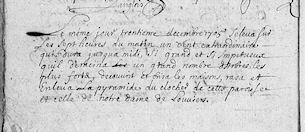 Le meme jour trentieme decembre 1705 Seleva sur
Les Sept heures du matin un vent extraordinaire
qui dura jusqua midi, Si grand et Si Impetueux
quil deracina un grand nombre d'arbres les
plus forts, decouvrit les maisons, rasa et
Enleva la pyramide du clocher de cette paroisse
et celle de notre dame de Louviers.